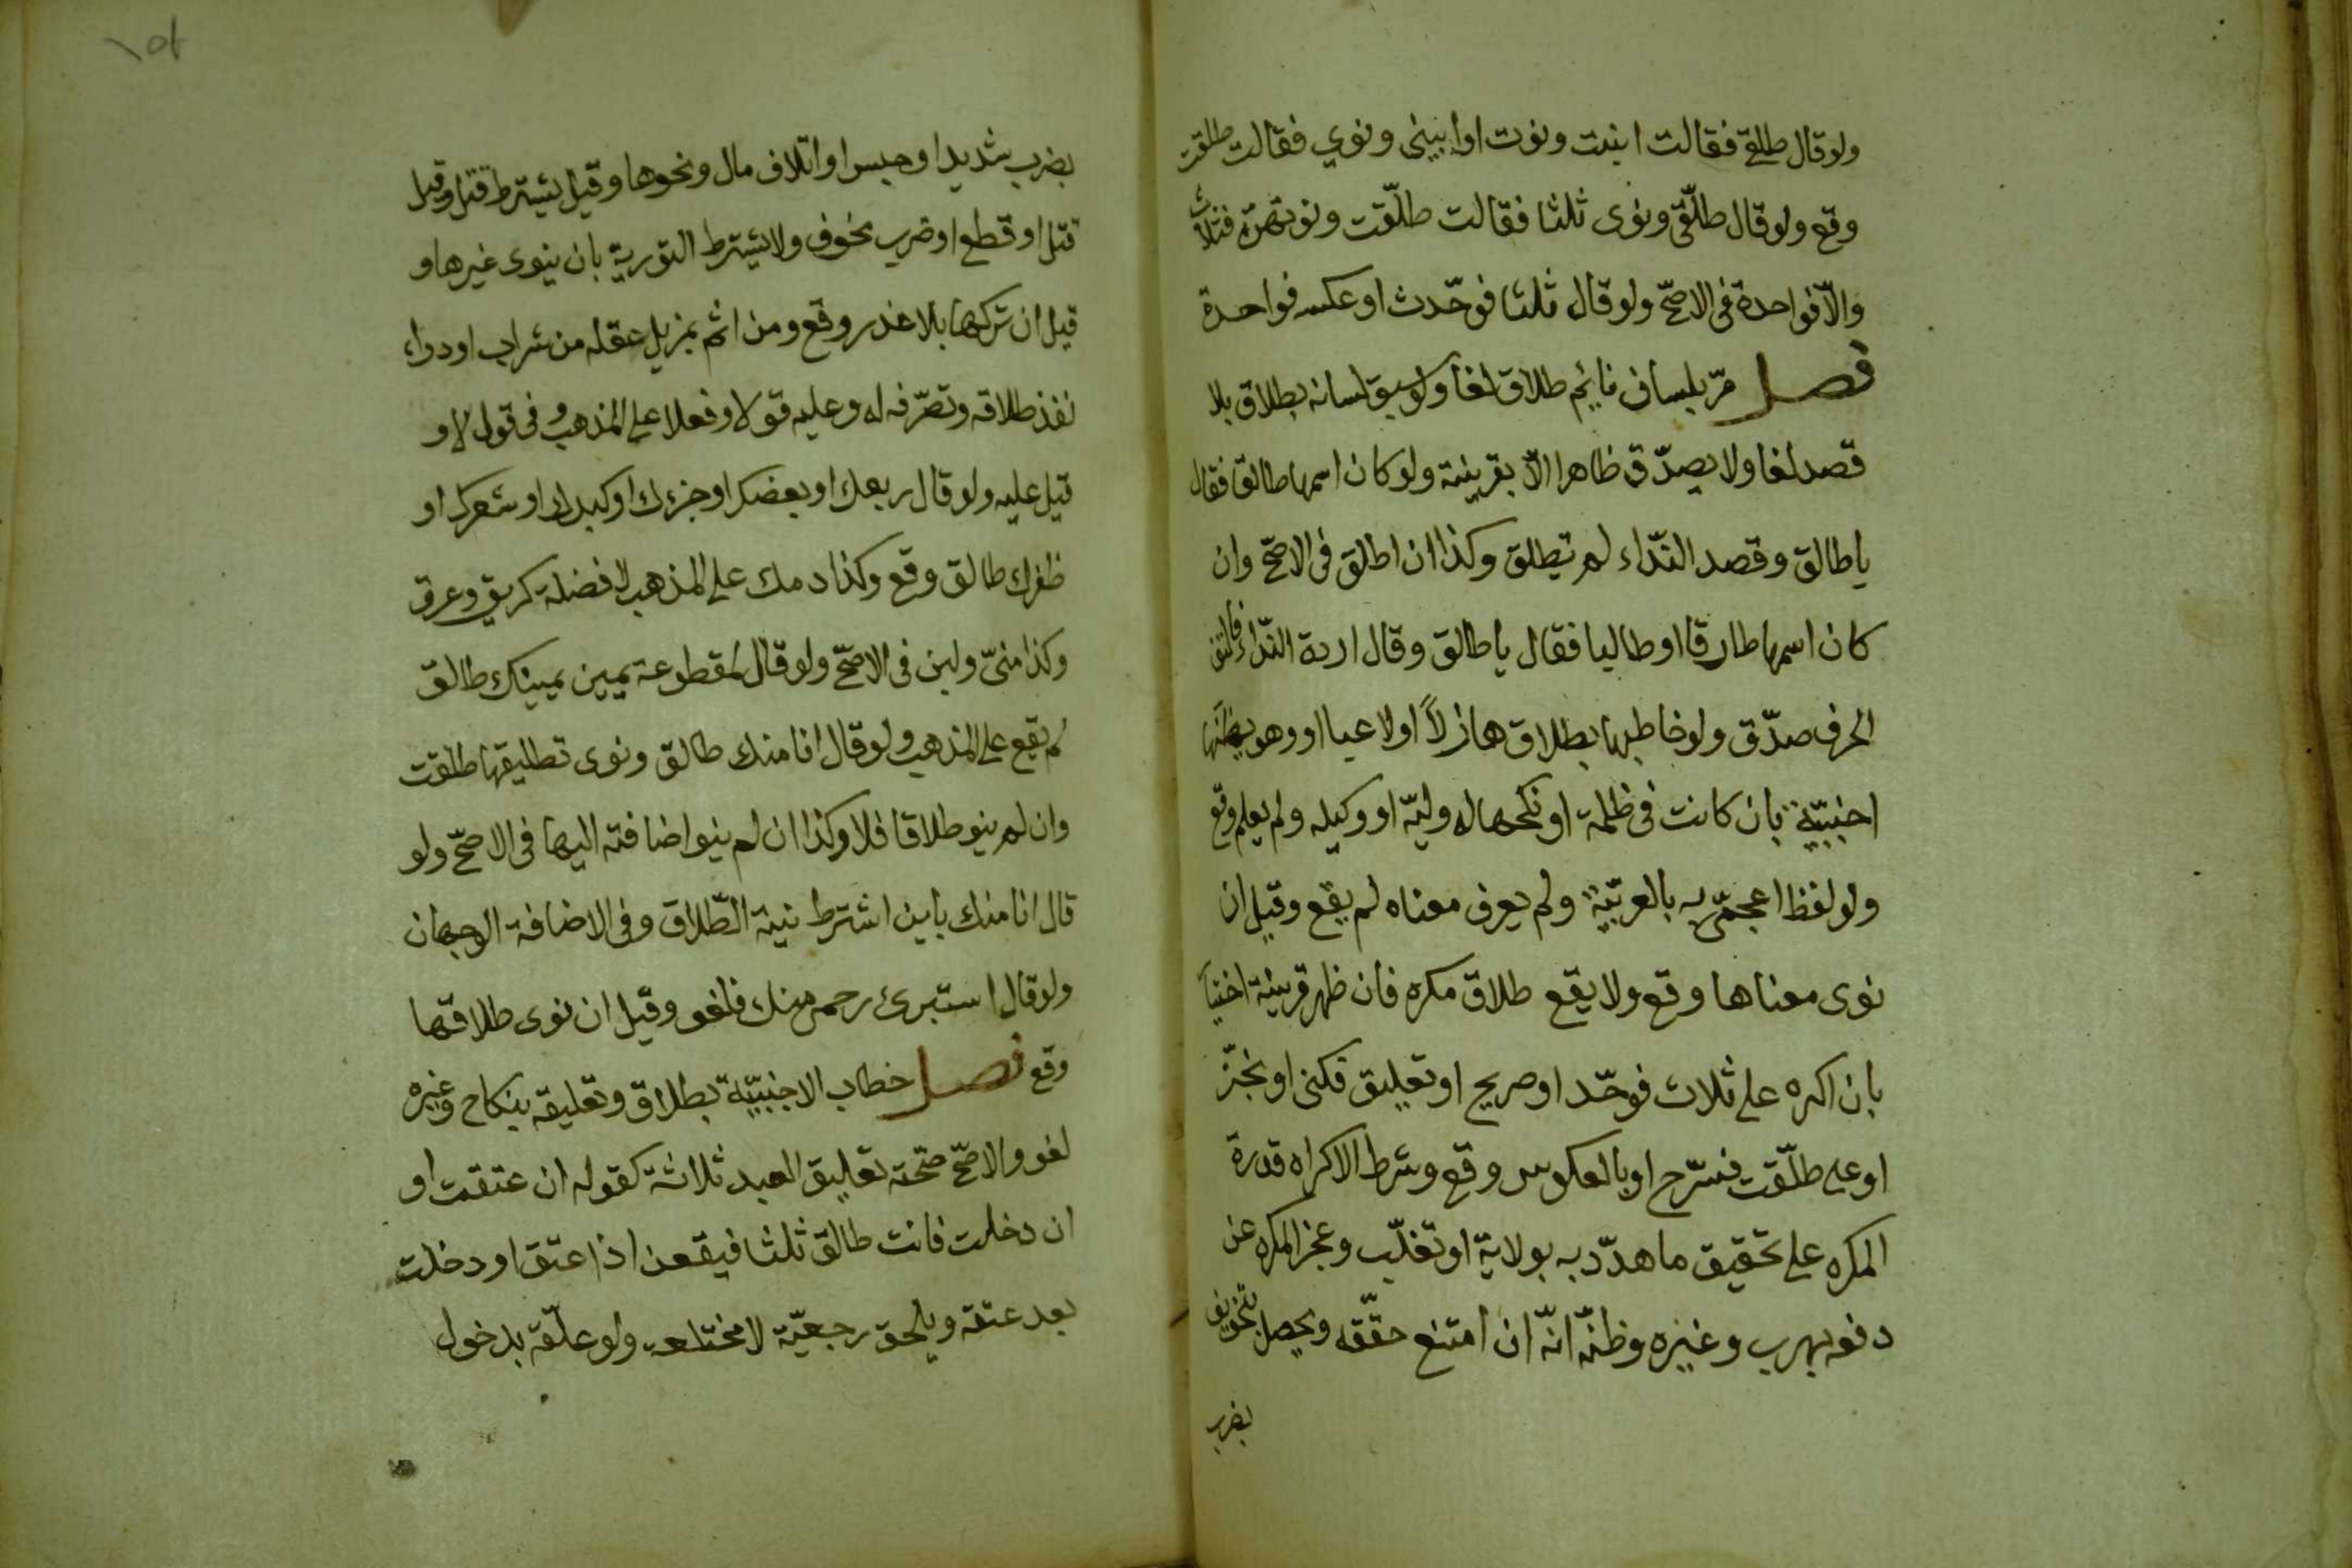 ولو قال طلقى فقالت ابنت ونوت او ابينى ونوي فقالت طلقت
وقع ولو قال طلّقى ونوى ثلثا فقالت طلّقت ونوتهنّ فثلاث
والّا فواحدة فى الاصحّ ولو قال ثلثا فوحّدت او عكسه فواحدة
فصل مرّ بلسان نايم طلاق لغا ولو سبق لسانه بطلاق بلا
قصد لغا ولا يصدّق ظاهرا الّا بقرينة ولو كان اسمها طالقا فقال
يا طالق وقصد النّداء لم تطلق وكذا ان اطلق فى الاصحّ وان
كان اسمها طارقا او طالبا فقال يا طالق وقال اردت النّداء فالتفّ
الحرف صدّق ولو خاطبها بطلاق هازلاً او لاعبا او وهو يظنّها
اجنبيّة بان كانت فى ظلمة او نكحها له وليّه او وكيله ولم يعلم وقع
ولو لفظ اعجمىّ به بالعربيّة ولم يعرف معناه لم يقع وقيل ان
نوى معناها وقع ولا يقع طلاق مكره فان ظهر قرينة اختيا
بان اكره على ثلاث فوحّد او صريح او تعليق فكنى او نجّز
او على طلّقت فسرّح او بالعكوس وقع وشرط الاكراه قدرة
المكره على تحقيق ما هدّد به بولاية او تغلّب وعجز المكره عن
دفعه بهرب وغيره وظنّه انّه ان امتنع حقّقه ويحصل بتخويف
بضرب
١٥٢
بضرب شديد او حبس او اتلاف مال ونحوها وقيل يشترط قتل وقيل
قتل او قطع او ضرب مخوف ولا يشترط التورية بان ينوى غيرها و
قيل ان تركها بلا عذر وقع ومن اثم بمزيل عقله من شراب او دواء
نفذ طلاقه وتصرّفه له وعليه قولا وفعلا على المذهب وفى قول لا و
قيل عليه ولو قال ربعك او بعضك او جزءك او كبدك او شعرك او
ظفرك طالق وقع وكذا دمك على المذهب لا فضلة كريق وعرق
وكذا منىّ ولبن فى الاصحّ ولو قال لمقطوعة يمين يمينك طالق
لم يقع على المذهب ولو قال انا منك طالق ونوى تطليقها طلقت
وان لم ينو طلاقا فلا وكذا ان لم ينو اضافته اليها فى الاصحّ ولو
قال انا منك باين اشترط نيتة الطّلاق وفى الاضافة الوجهان
ولو قال استبرئ رحمى منك فلغو وقيل ان نوى طلاقها
وقع فصل خطاب الاجنبيّة بطلاق وتعليقه بنكاح وغيره
لغو والاصحّ صحّة تعليق العبد ثلاثة كقوله ان عتقت او
ان دخلت فانت طالق ثلثا فيقعن اذا عتق او دخلت
بعد عتقه ويلحق رجعيّة لا مختلعة ولو علّقه بدخول